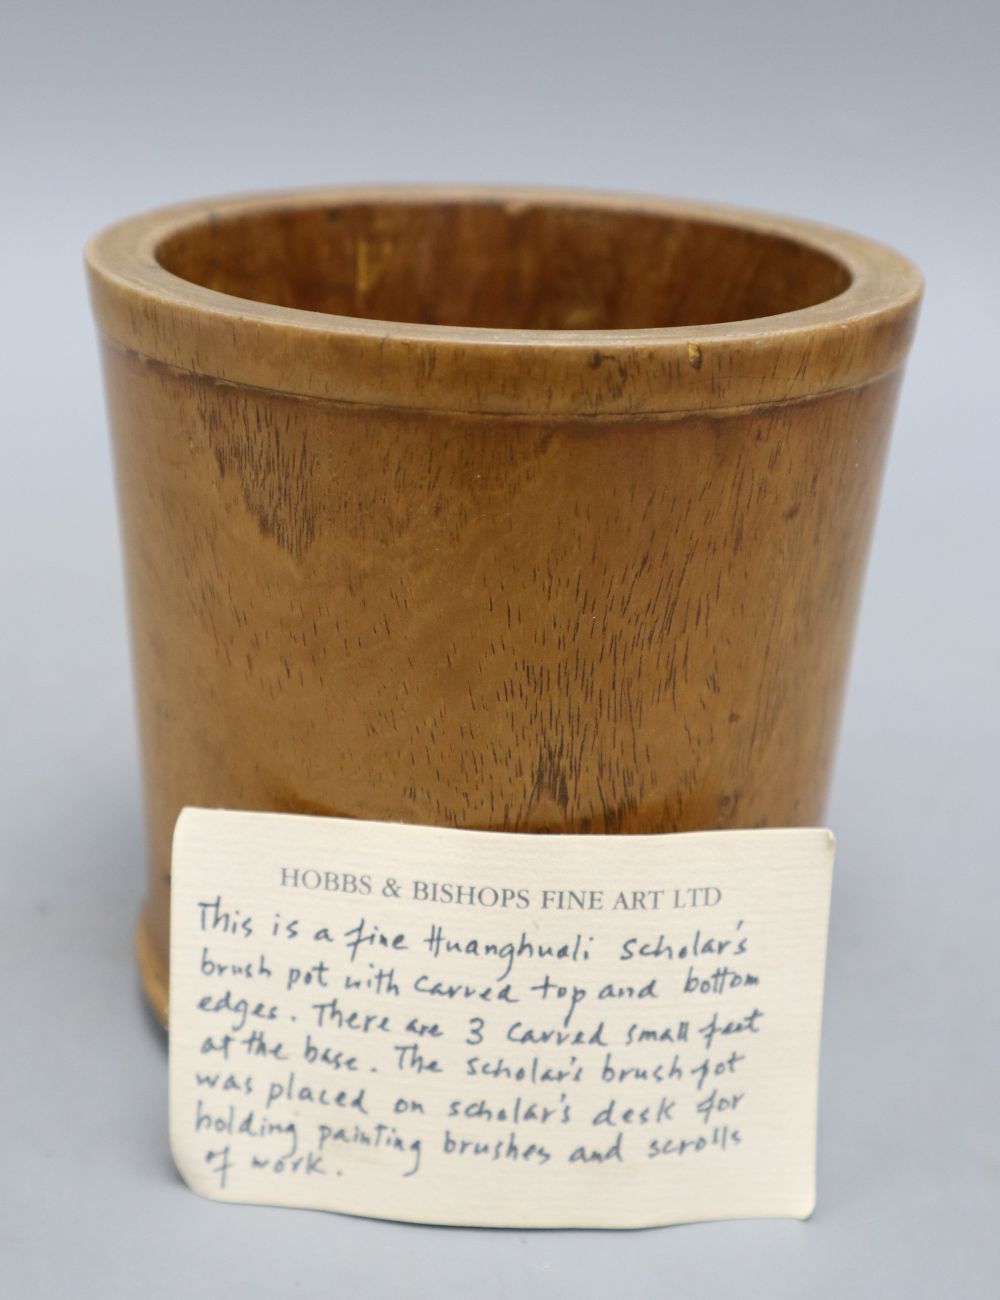 HOBBS & BISHOPS FINE ART LTD
This is a fine Huanghuali Scholar's
brush pot with carved top and bottom
edges. There are 3 carved small feet
at the base. The scholar's brush pot
was placed on scholar's desk for
holding painting brushes and scrolls
of work.